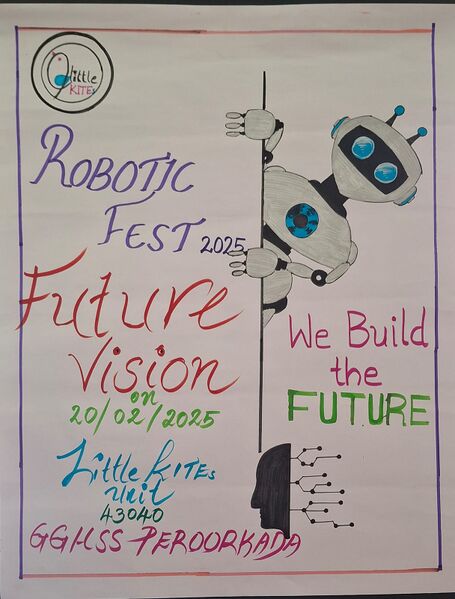 little
KITEs
ROBOTIC
FEST 2025
Future
Vision
on
20/02/2025
Little KITEs
Unit
43040
GGHSS PEROORKADA
We Build
the
FUTURE